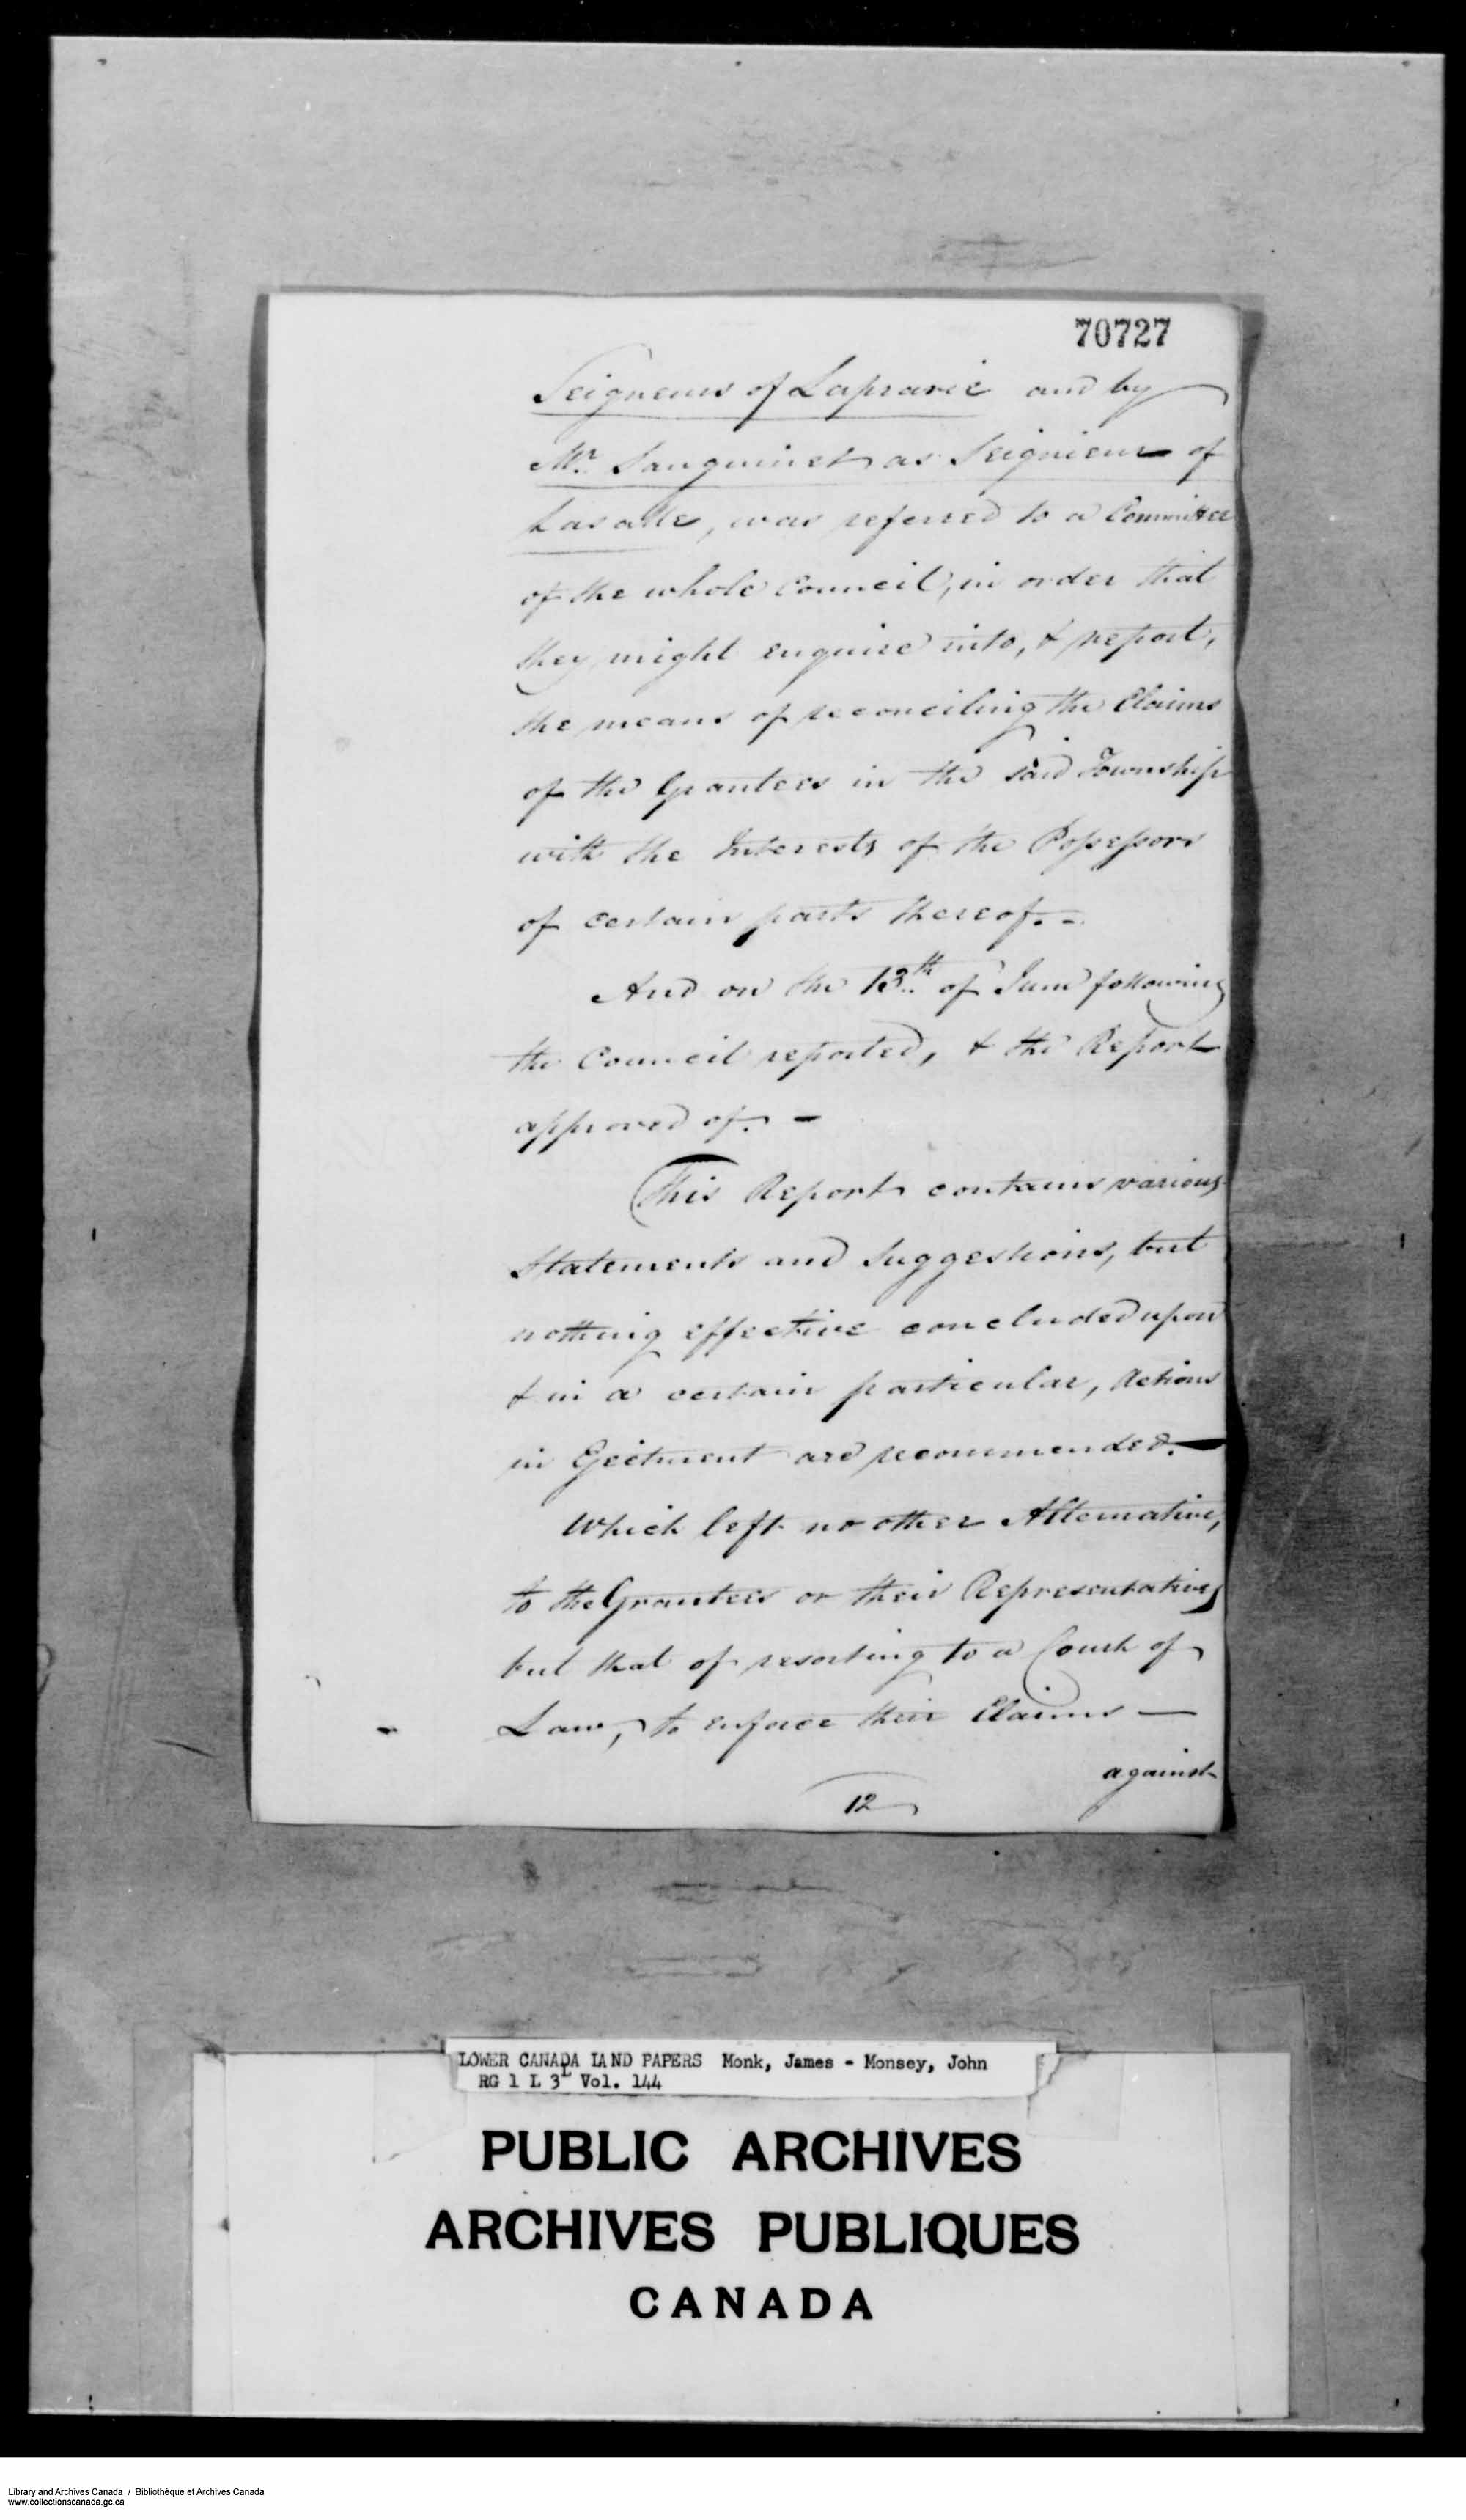 70727
Seigneurs of Laprarie and by
Mr. Sanguinet as Seignieur of
Lasalle, was referred to a Committee
of the whole Council, in order that
they might enquire into, & report,
the means of reconciling the Claims
of the Grantees in the said Township
with the Interests of the Possessors
of certain parts thereof. -
And on the 13th of June following
the Council reported, & the Report
approved of. -
This Report contains various
Statements and Suggestions, but
nothing effective concluded upon
& in a certain particular, Actions
in Ejectment are recommended. -
Which left no other Alternative,
to the Grantees or their Representatives
but that of resorting to a Court of
Law, to enforce their Claims —
against
12
LOWER CANADA LAND PAPERS Monk, James - Monsey, John
RG 1 L 3L Vol. 144
PUBLIC ARCHIVES
ARCHIVES PUBLIQUES
CANADA
Library and Archives Canada / Bibliothèque et Archives Canada
www.collectionscanada.gc.ca